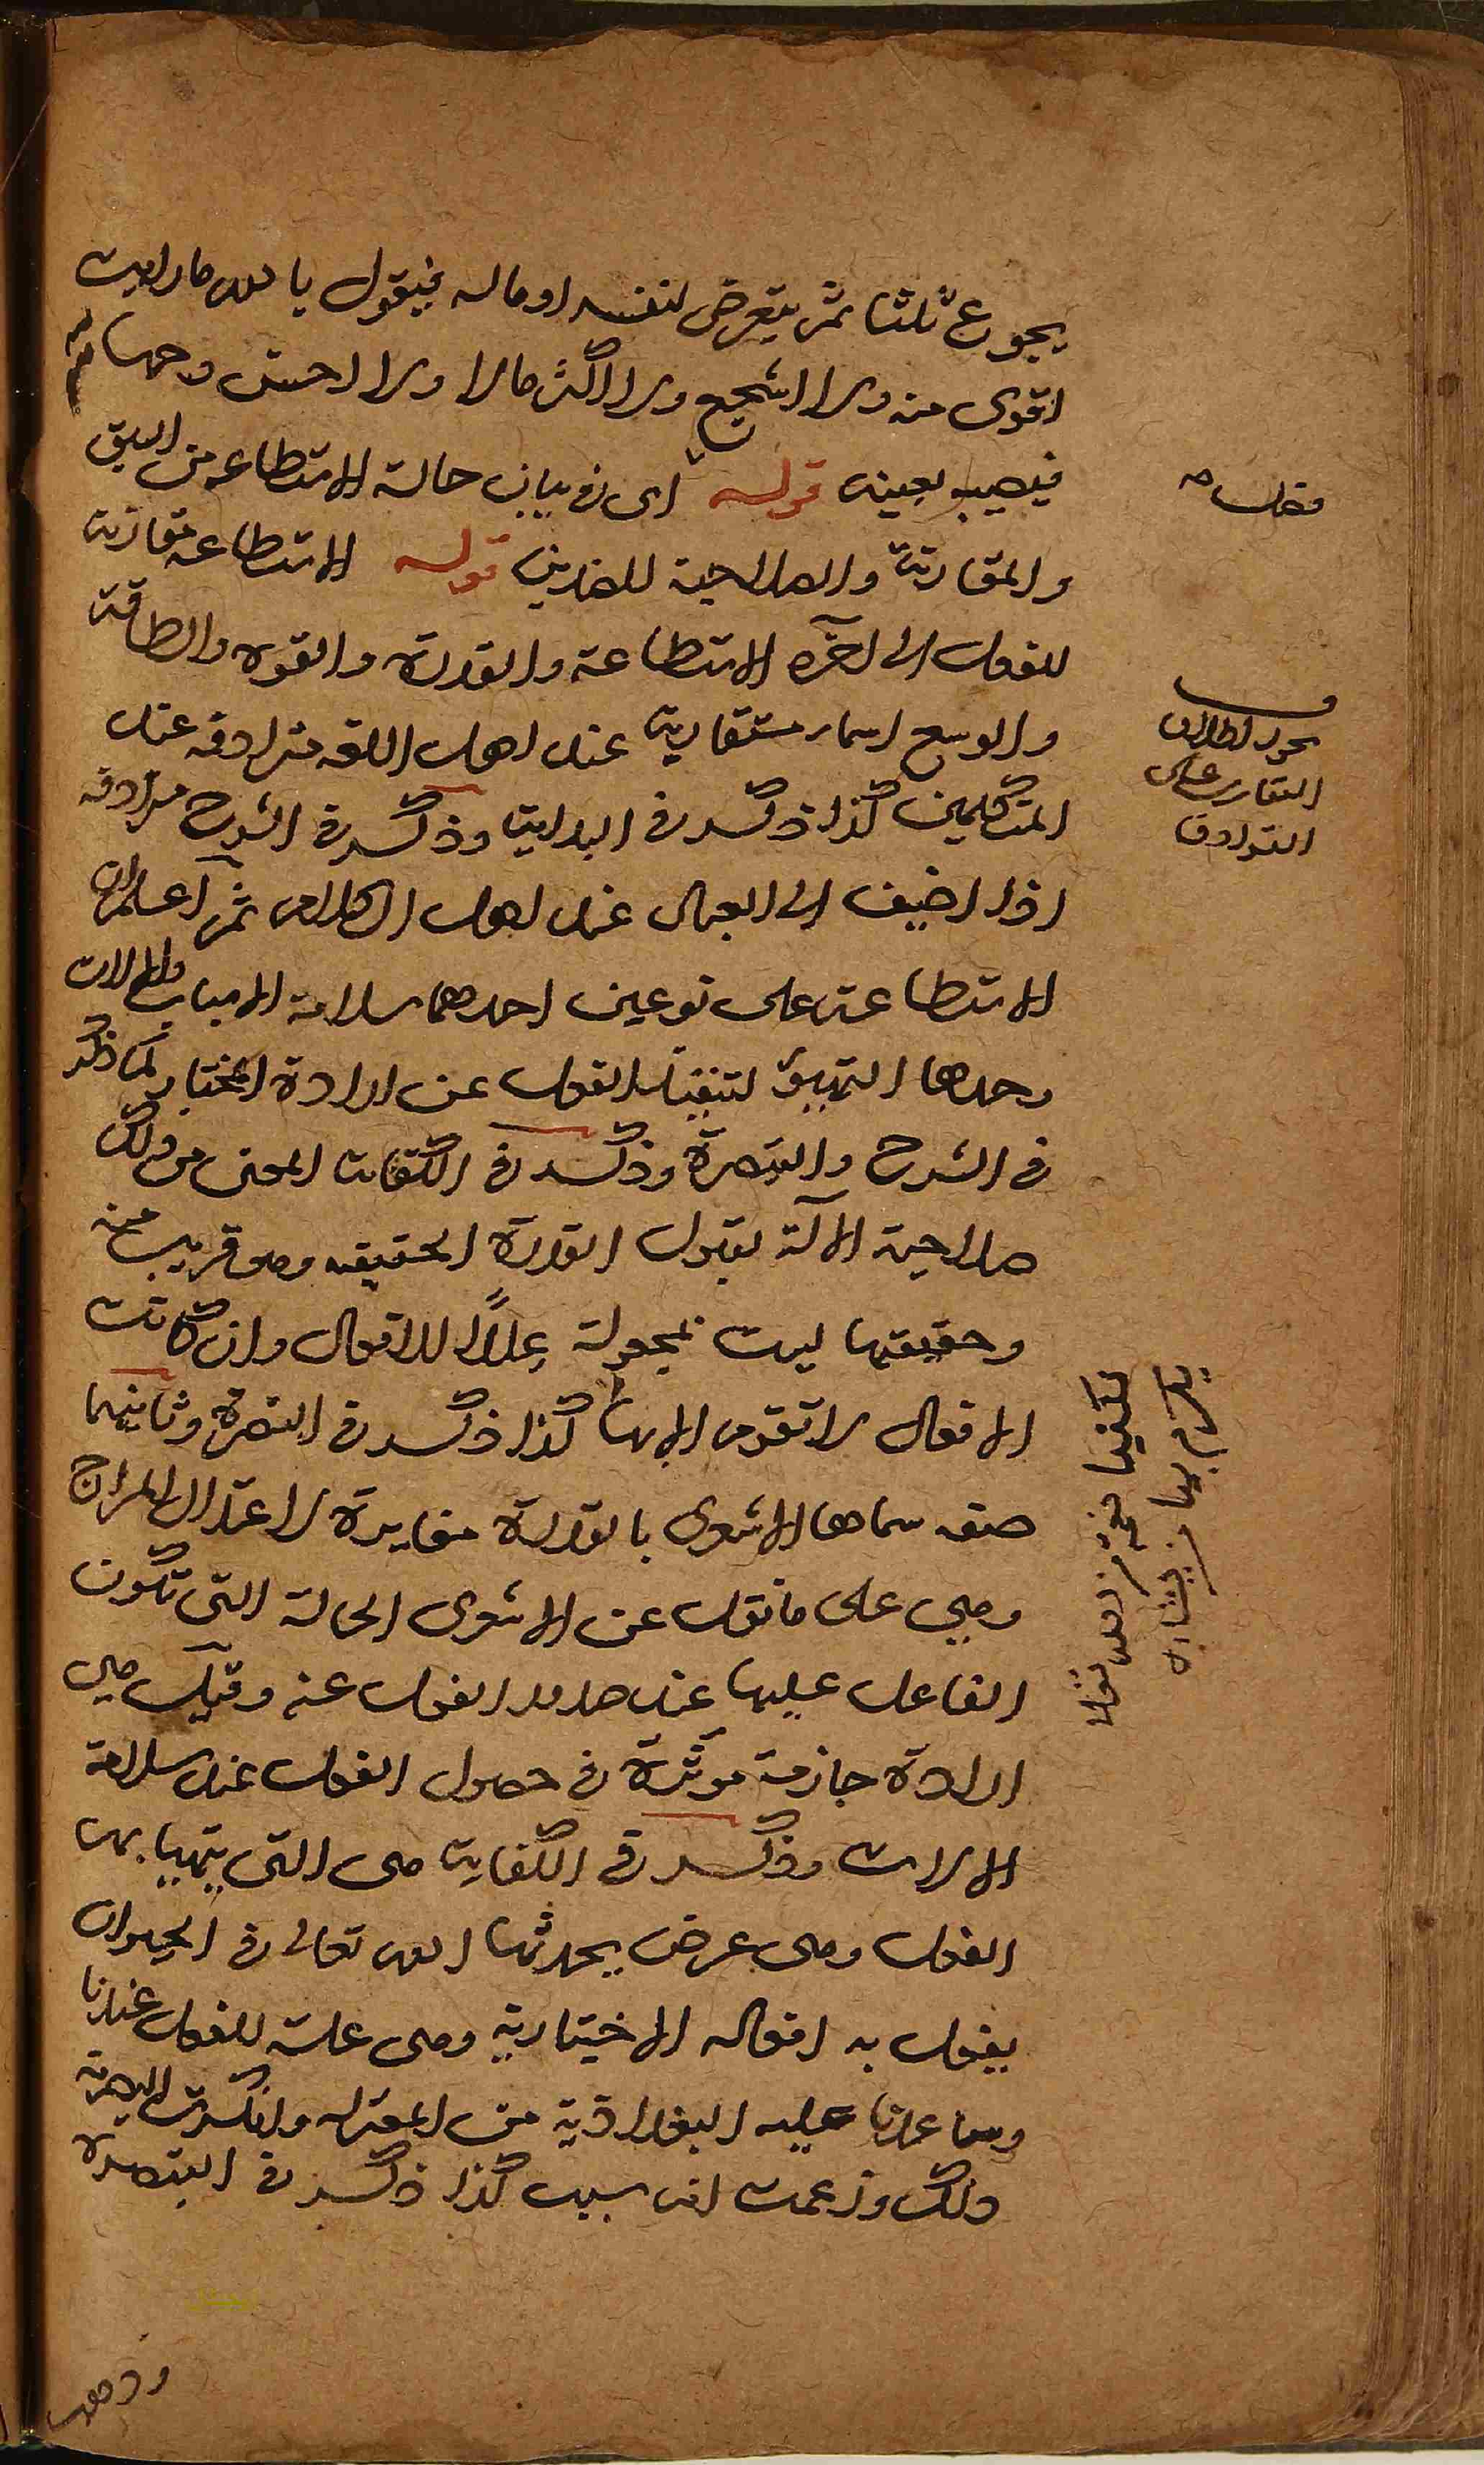 يجوع ثلثا ثم يتعرض لنفسه او ماله فيقول يا لله ما رايت
اقوى منه ولا اشجع ولا اكثر مالا ولا احسن وجها منه
فيصيب بعينه قوله اى فى بيان حالة الاستطاعة من السبق
والمقارنة والصلاحية للضدين قوله الاستطاعة مقارنة
للفعل الى آخره الاستطاعة والقدرة والقوة والطاقة
والوسع اسماء متقاربة عند اهل اللغة مترادفة عند
المتكلمين كذا ذكر فى البداية وذكر فى الشرح مترادفة
اذا اضيف الى العباد عند اهل الكلام ثم اعلم ان
الاستطاعة على نوعين احدهما سلامة الاسباب والالات
وحدها التهيؤ لتنفيذ الفعل عن ارادة المختار كما ذكر
فى الشرح والتبصرة وذكر فى الكفاية المعنى من ذلك
صلاحية الآلة لقبول القدرة الحقيقه وهو قريب منه
وحقيقتها ليست بمجعولة عللاً للافعال وان كانت
الافعال لا تقوم الا بها كذا ذكر فى التبصرة وثانيهما
صفة سماها الاشعرى بالقدرة مغايرة لاعتدال المزاج
وهي على ما نقل عن الاشعرى الحالة التى تكون
الفاعل عليها عند صدور الفعل عنه وقيل هى
ارادة جازمة موثرة فى حصول الفعل عند سلامة
الالات وذكر فى الكفاية هى التى يتهيا بها
الفعل وهى عرض يحدثها الله تعالى فى الحيوان
يفعل به افعاله الاختيارية وهى علة للفعل عندنا
وساعدنا عليه البغداذية من المعتزلة وانكرت البصرية
ذلك وزعمت انه سبب كذا ذكر فى التبصرة
يجوز اطلاق
التقارب على
الترادف